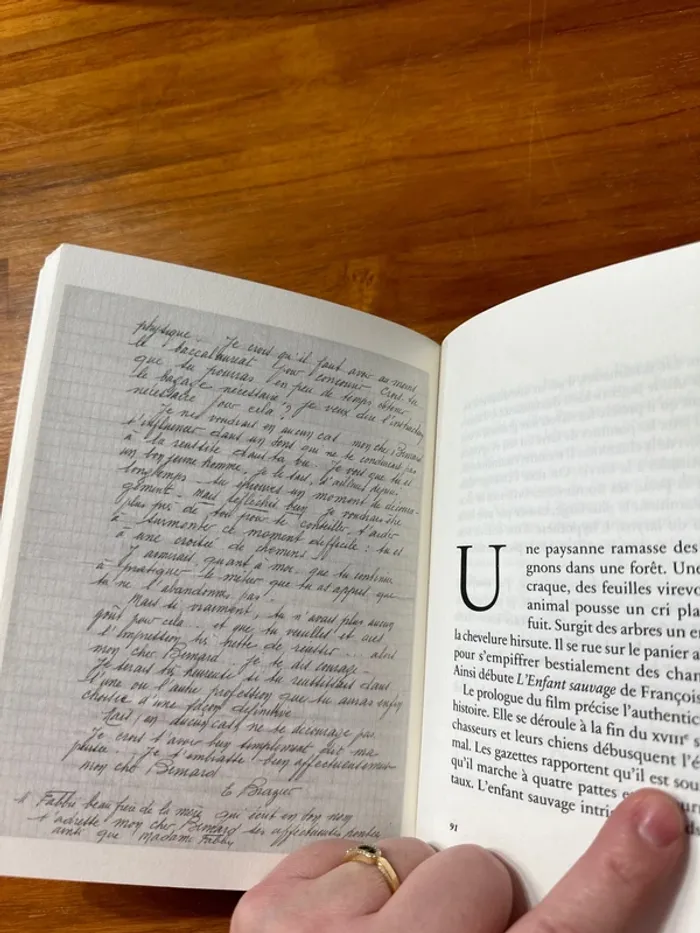 physique. Je crois qu'il faut avoir au moins
le baccalaureat pour concourir. Crois tu
que tu pourras en peu de temps obtenir
le bagage nécessaire, je veux dire l'instruction
nécessaire pour cela ?
Je ne voudrais en aucun cas, mon cher Bernard
t'influencer dans un sens qui ne te conduirait pas
à la réussite dans ta vie. Je vois que tu es
un bon jeune homme, je le sais, d'ailleurs depuis
longtemps. tu éprouves un moment de découra-
gement. Mais réfléchis bien. Je voudrais être
plus près de toi pour te conseiller, t'aider
à surmonter ce moment difficile : tu es
à une croisée de chemins.
J'aimerais, quant à moi, que tu continues
à pratiquer le métier que tu as appris, que
tu ne l'abandonnes pas.
Mais si vraiment, tu n'avais plus aucun
goût pour cela.. et que tu veuilles et aies
l'impression très nette de réussir ... alors
mon cher Bernard.. je te dis courage.
Je serais très heureuse si tu réussissais dans
l'une ou l'autre profession que tu auras enfin
choisie d'une façon définitive.
Mais, en aucun cas, ne te décourage pas.
Je crois t'avoir bien simplement dit ma
pensée. Je t'embrasse bien affectueusement
mon cher Bernard
E Brazier
M Fabbre beau frère de la mère qui
t'adresse mon cher Bernard ses affectueuses pensées
ainsi que Madame Fabby
Une paysanne ramasse des
gnons dans une forêt. Une
craque, des feuilles virevo
animal pousse un cri pla
fuit. Surgit des arbres un en
la chevelure hirsute. Il se rue sur le panier a
pour s'empiffrer bestialement des chan
Ainsi débute L'Enfant sauvage de François
Le prologue du film précise l'authentic
histoire. Elle se déroule à la fin du XVIIIe s
chasseurs et leurs chiens débusquent l'é
mal. Les gazettes rapportent qu'il est sou
qu'il marche à quatre pattes
taux. L'enfant sauvage intri
91